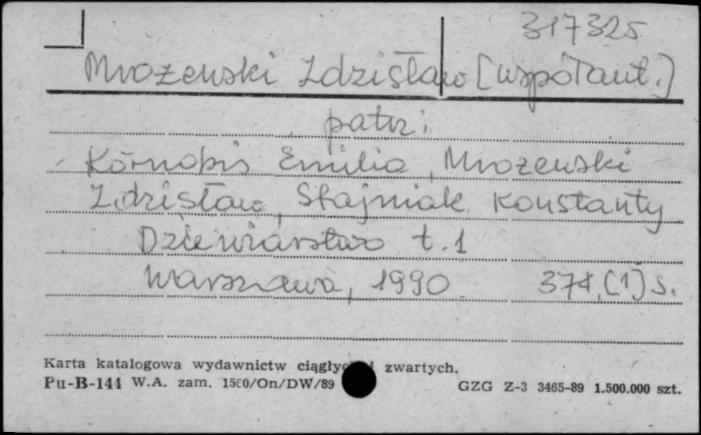 317325
Mrożewski Zdzisław [współaut.]
patrz:
Kornobis Emilia, Mrożewski
Zdzisław, Stajniak Konstanty
Dziewiarstwo t. 1
Warszawa, 1990 374, [1] s.
Karta katalogowa wydawnictw ciągłych i zwartych.
Pu-B-144 W.A. zam. 1560/On/DW/89 GZG Z-3 3465-89 1.500.000 szt.